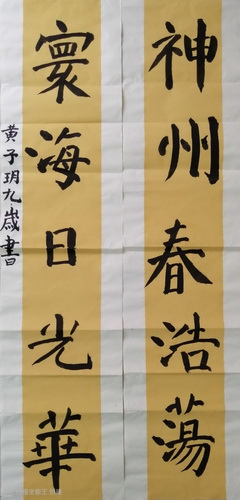 神州春浩蕩
寰海日光華
黄子玥九歲書